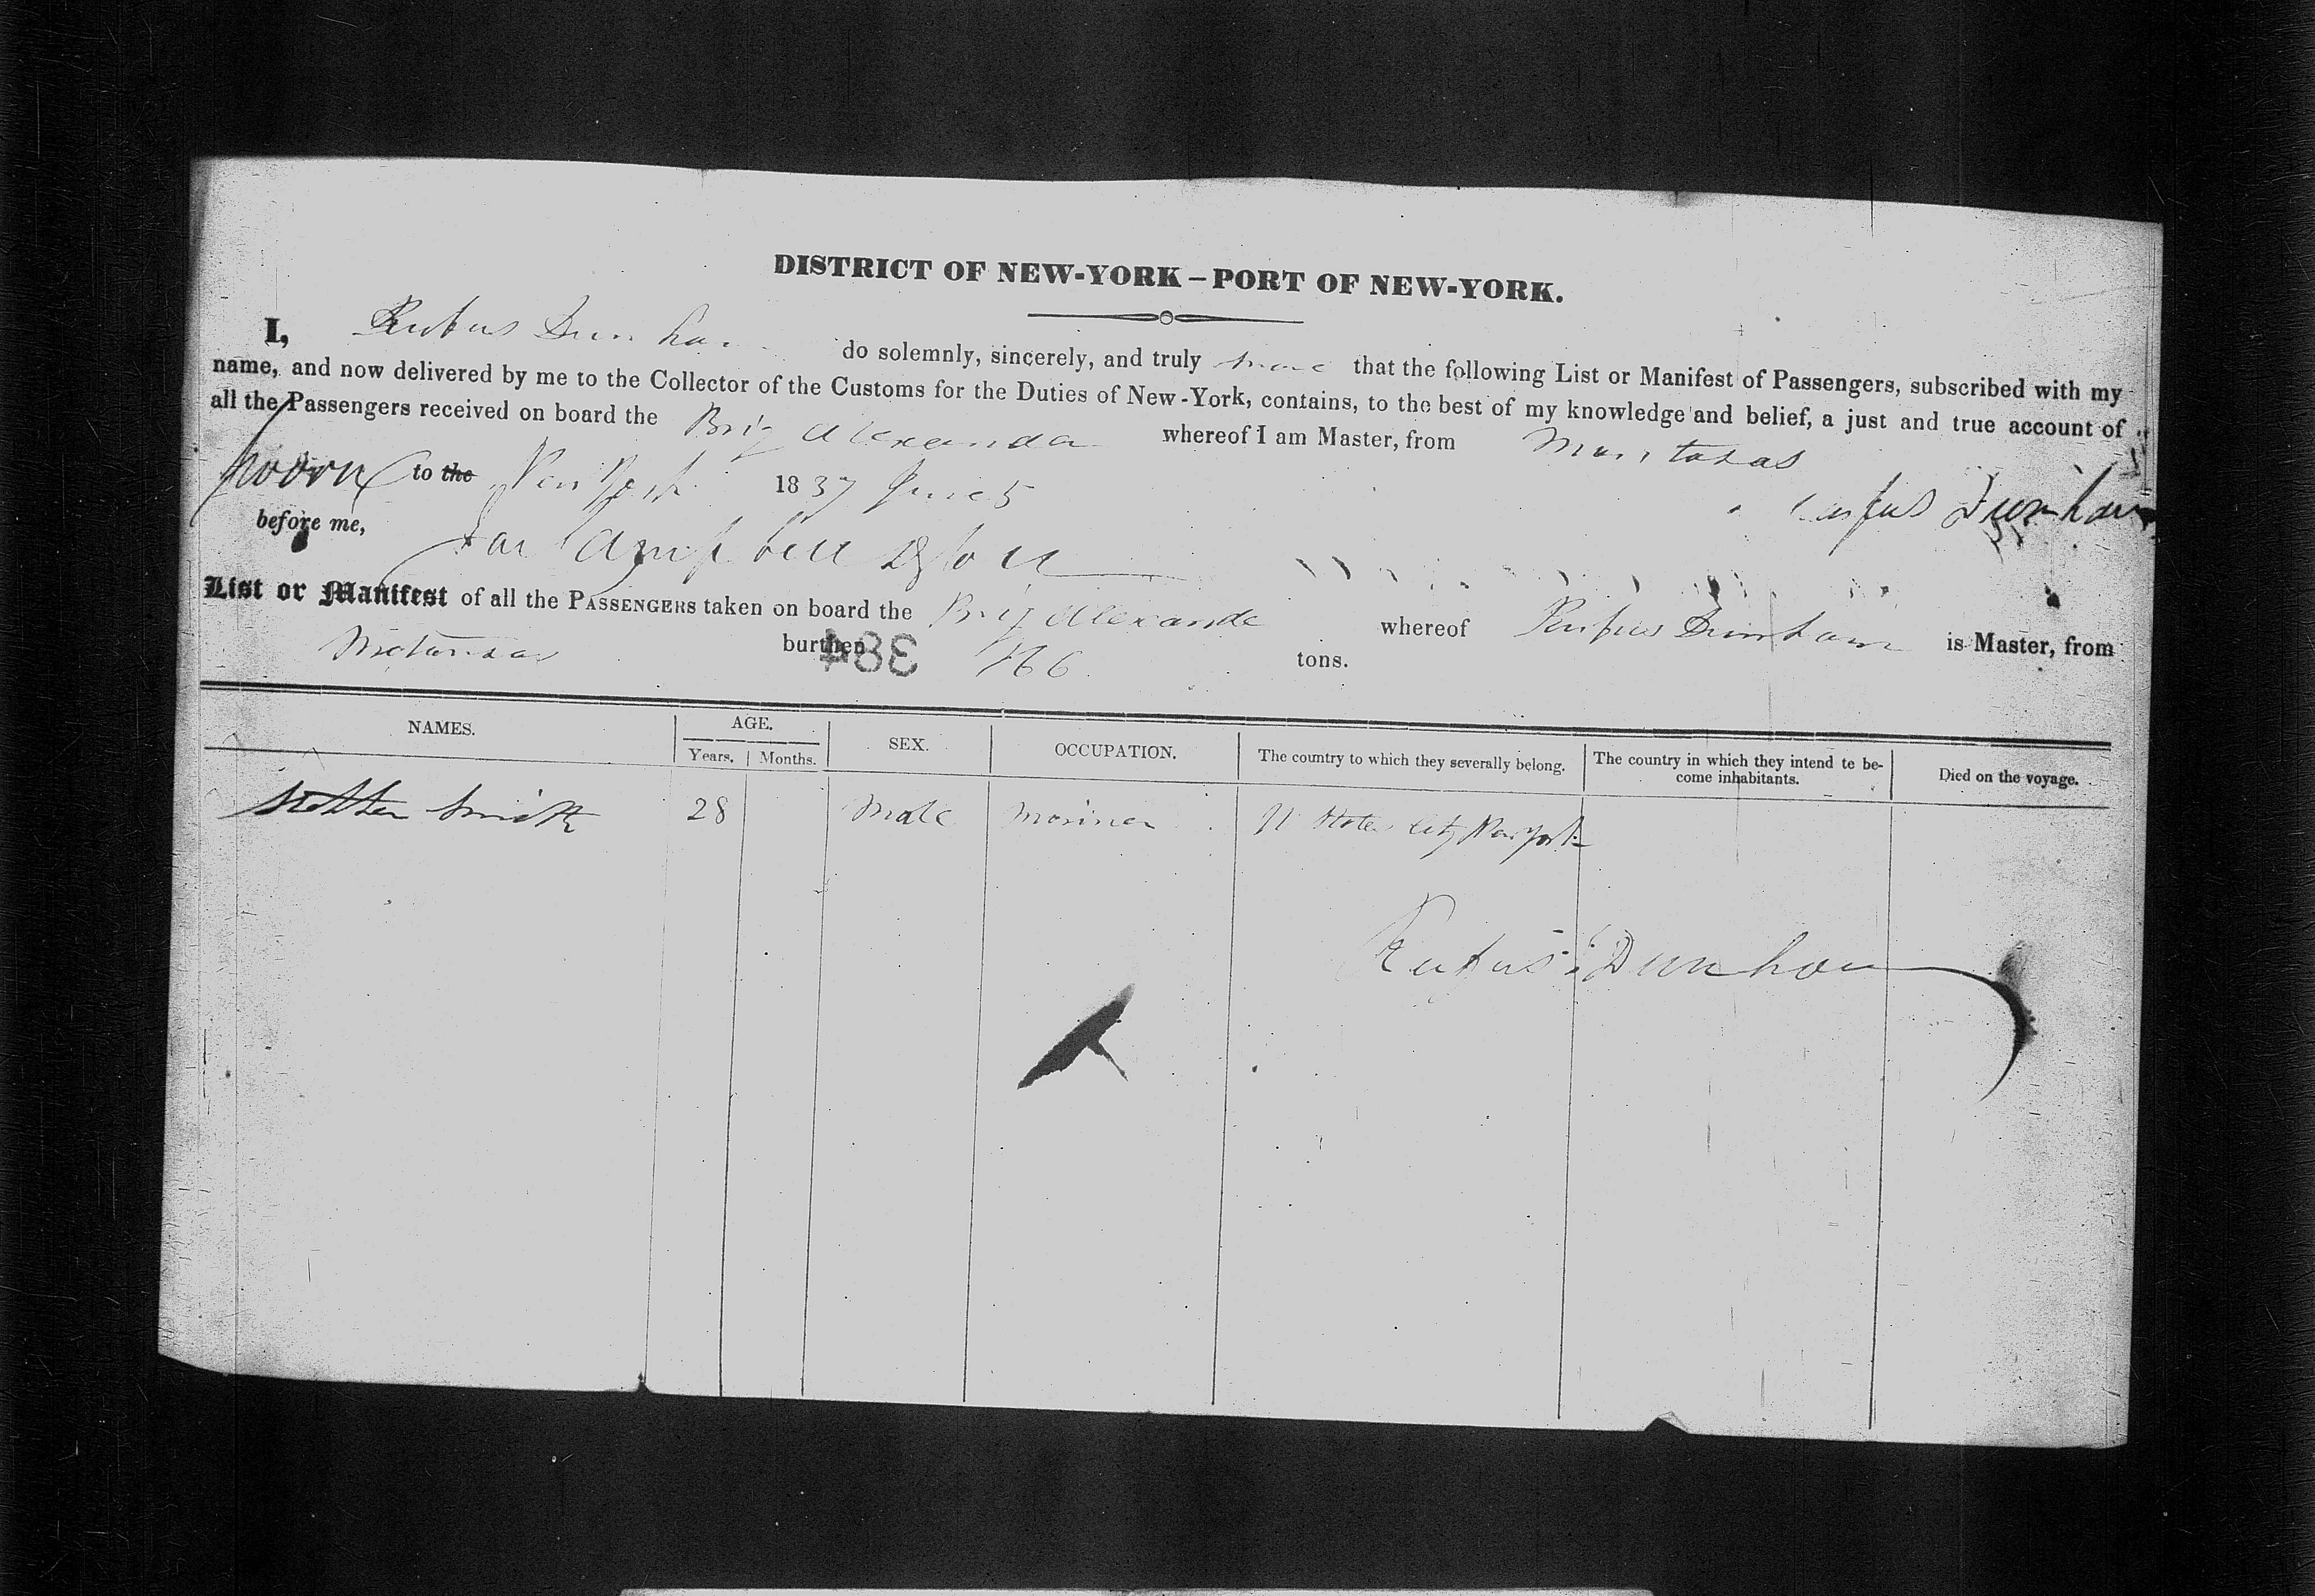 DISTRICT OF NEW-YORK – PORT OF NEW-YORK.
I, Rufus Dunham do solemnly, sincerely, and truly that the following List or Manifest of Passengers, subscribed with my
name, and now delivered by me to the Collector of the Customs for the Duties of New-York, contains, to the best of my knowledge and belief, a just and true account of
all the Passengers received on board the Brig Alexander whereof I am Master, from
sworn to the New York 1837 June 5
Rufus Dunham
before me,
Campbell
List or Manifest of all the PASSENGERS taken on board the Brig Alexander whereof Rufus Dunham is Master, from
Matanzas burthen 166 tons.
384
NAMES. AGE. SEX. OCCUPATION. The country to which they severally belong. The country in which they intend te be-
come inhabitants. Died on the voyage.
Years. Months.
Smith 28 Male Mariner States City New York
Rufus Dunham